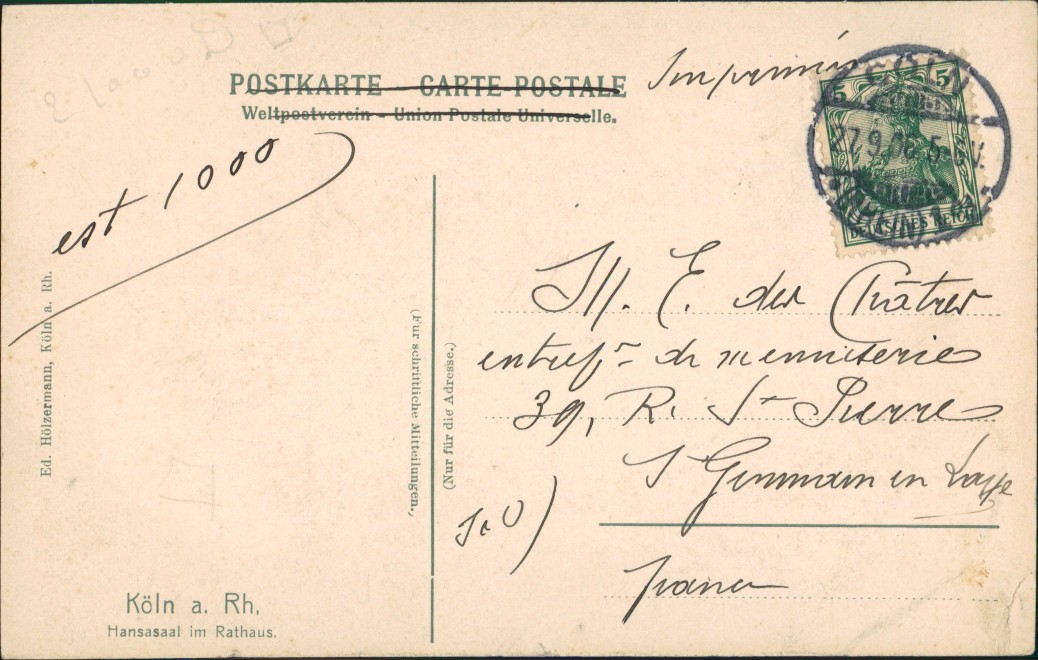 POSTKARTE — CARTE POSTALE
Weltpostverein - Union Postale Universelle.
Imprimé
5 5
27.9.06.5-6V.
DEUTSCHES REICH
est 1000
Ed. Hölzermann, Köln a. Rh.
(Fur schriftliche Mitteilungen.,
(Nur für die Adresse.)
M. E. des Châtres
entrepr de menuiserie
39, R. St Pierre
St Germain en Laye
S. & O)
France
Köln a. Rh,
Hansasaal im Rathaus.